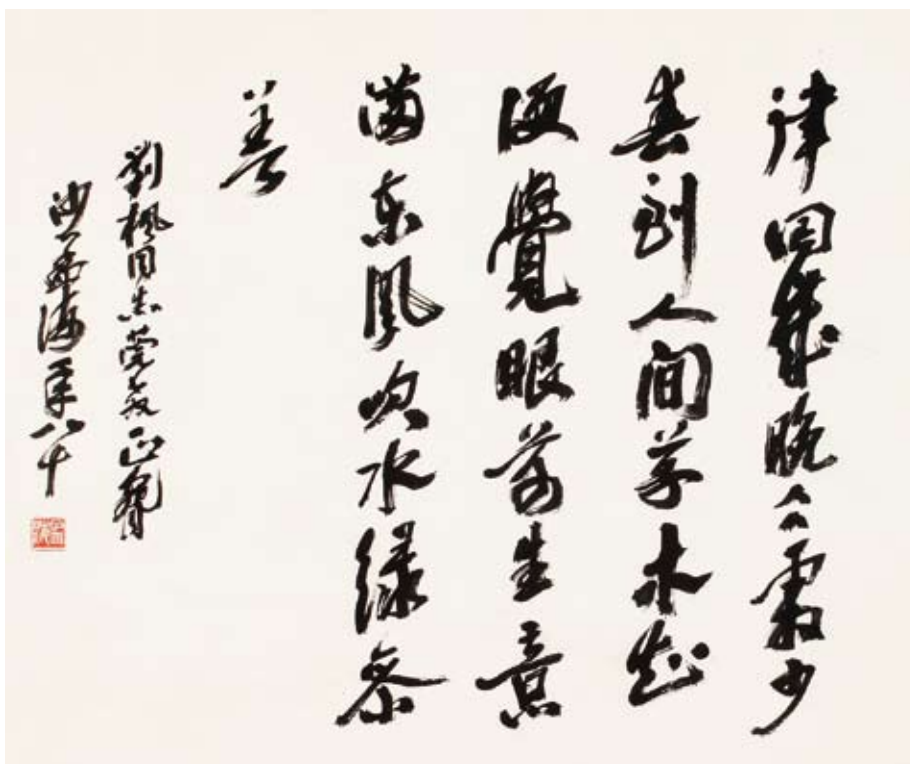 律回歲晚仌霜少
春到人間草木知
便覺眼前生意
滿东風吹水緑参
差
劉楓同志正腕
沙孟海年八十